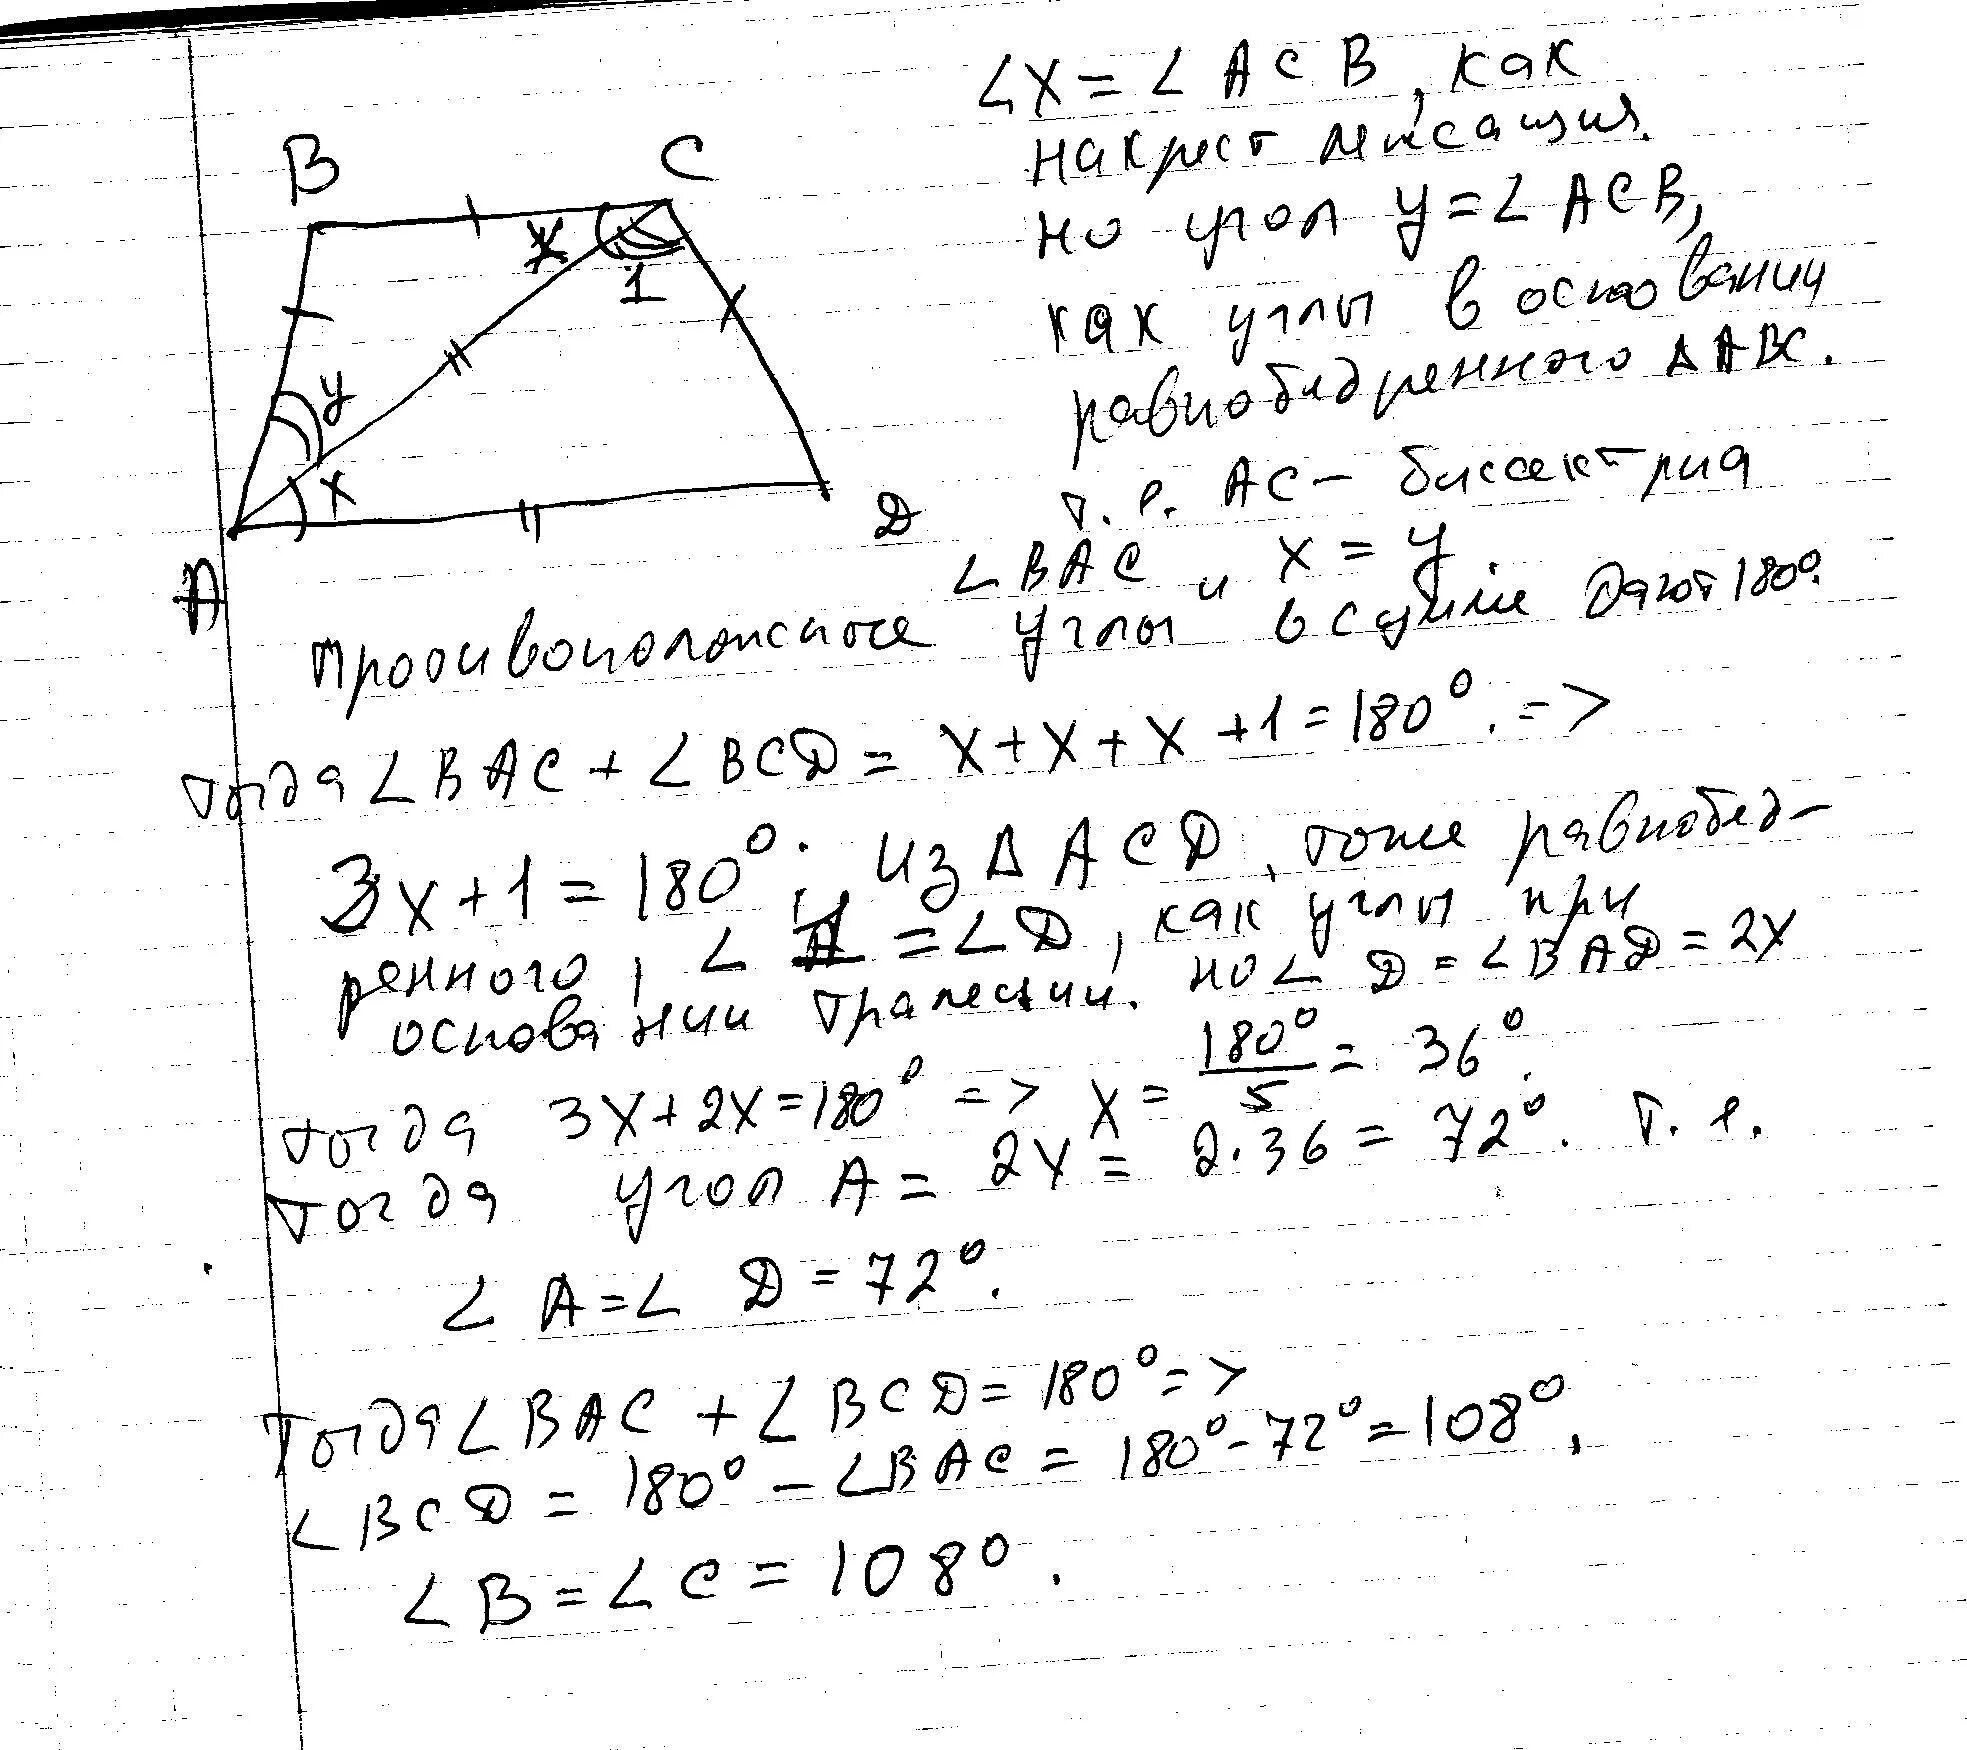 ∠X = ∠ACB, как
накрест лежащия.
но угол y = ∠ACB,
как углы в основании
равнобедренного ΔABC.
т. е. AC – биссектриа
∠BAC и x = y.
B C
X 1
y
X
A D
Противоположное углы в сумме дают 180°.
тогда ∠BAC + ∠BCD = X + X + X + 1 = 180°. =>
3X + 1 = 180°. из ΔACD, тоже равнобед–
ренного, ∠ 1 = ∠D, как углы при
основании трапеции. но ∠D = ∠BAD = 2X
тогда 3X + 2X = 180° => X = 180°/5 = 36°.
тогда угол A = 2X = 2·36 = 72°. т. е.
∠A = ∠D = 72°.
Тогда ∠BAC + ∠BCD = 180° =>
∠BCD = 180° – ∠BAC = 180° – 72° = 108°.
∠B = ∠C = 108°.